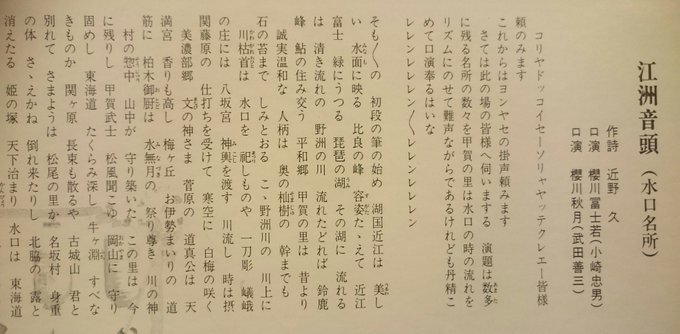 江洲音頭（水口名所）
作詩　近野　久
口演　櫻川富士若（小崎忠男）
口演　櫻川秋月（武田善三）
コリヤドッコイセーソリャヤッテクレエー皆様
頼のみます
これからはヨンヤセの掛声頼みます
さては此の場の皆様へ伺いまする　演題は数多
に残る名所の数々を甲賀の里は水口の時の流れを
リズムにのせて難声ながらであるけれども丹精こ
めて口演奉るはいな
レレンレンレン〳〵レレンレンレン
そも〳〵の　初段の筆の始め　湖国近江は　美し
い　水面に映る　比良の峰　容姿たゝえて　近江
富士　緑にうつる　琵琶の湖　その湖に　流れる
は　清き流れの　野洲の川　流れたどれば　鈴鹿
峰　鮎の住み交う　平和郷　甲賀の里は　昔より
誠実温和な　人柄は　奥の杣樹の　幹までも
石の苔まで　しみとおる　こゝ野洲川の　川上に
川枯首は　水口を　祀しものや　一刀彫　嶬峨
の庄には　八坂宮　神輿を渡す　川流し　時は摂
関藤原の　仕打ちを受けて　寒空に　白梅の咲く
美濃部郷　文の神さま　菅原の　道真公は　天
満宮　香りも高し　梅ヶ丘　お伊勢まいりの　道
筋に　柏木御厨は　水無月の　祭り尊き　川の神
村の惣中　山中が　守り築いた　この里は　今
に残りし　甲賀武士　松風聞こゆ　岡山に　守り
固めし　東海道　たくらみ深し　牛ヶ淵　すべな
きものか　関ヶ原　長束も散るや　古城山　君と
別れて　さまようは　松尾の里か　名坂村　身重
の体　さゝえかね　倒れ来たりし　北脇の　露と
消えたる　姫の塚　天下治まり　水口は　東海道